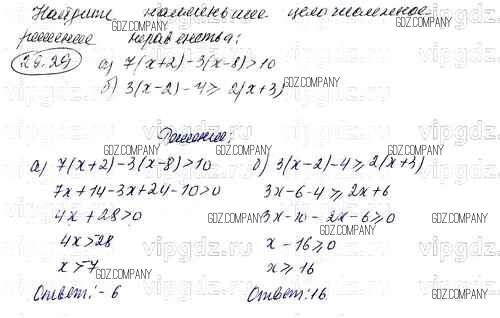 Найдите наименьшее целочисленное
решение неравенства:
29.29 а) 7(x+2)-3(x-8)>10
б) 3(x-2)-4⩾2(x+3)
Решение:
а) 7(x+2)-3(x-8)>10 б) 3(x-2)-4⩾2(x+3)
7x+14-3x+24-10>0 3x-6-4⩾2x+6
4x+28>0 3x-10-2x-6⩾0
4x>28 x-16⩾0
x>7 x⩾16
Ответ:-6 Ответ:16
GDZ.COMPANY
vipgdz.ru